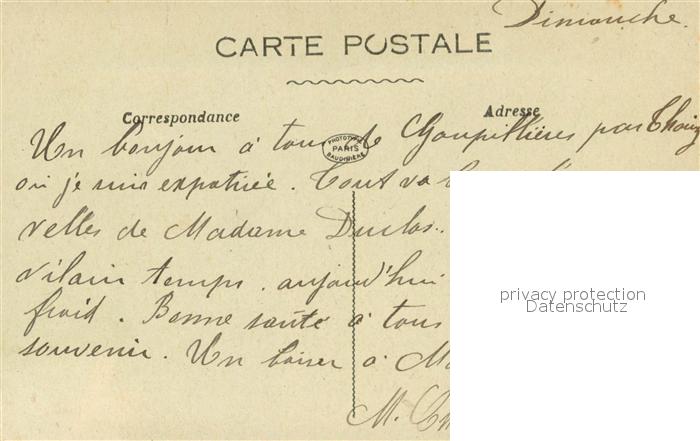 Dimanche.
CARTE POSTALE
Correspondance
Adresse
PHOTOTYPIE
PARIS
BAUDINIÈRE
Un bonjour à tous de Goupillières par Thoiry
où je suis expatriée. Tout va
velles de Madame Duclos..
vilain temps. aujourd'hui
froid. Bonne santé à tous
souvenir. Un baiser à
M.
privacy protection
Datenschutz